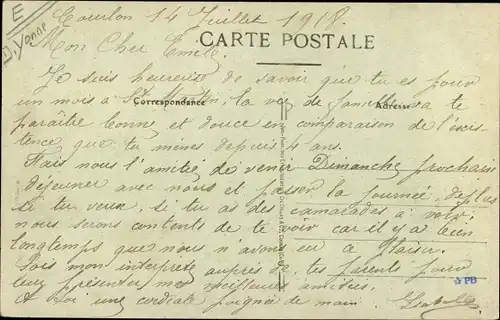 E
D. Yonne
Courlon 14 Juillet 1918.
Mon Cher Emile
CARTE POSTALE
Je suis heureuse de savoir que tu es pour
un mois à St Martin, la vie de famille va te
Correspondance
Adresse
paraître bonne et douce en comparaison de l'exis-
tence que tu mènes depuis 4 ans.
Fais nous l'amitié de venir Dimanche prochain
déjeuner avec nous et passer la journée, de plus
si tu veux, si tu as des camarades à voir,
nous serons contents de te voir car il y a bien
longtemps que nous n'avons eu ce plaisir.
Sois mon interprète auprès de tes parents pour
leur présenter mes meilleures amitiés.
A toi une cordiale poignée de main.
PB